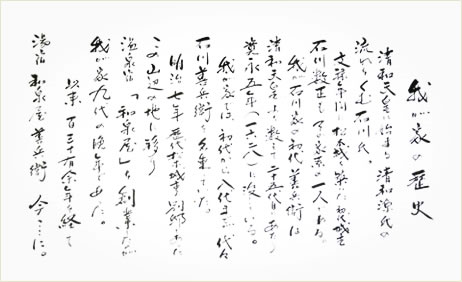 我が家の歴史
清和天皇に始まる 清和源氏の
流れをくむ石川氏。
文禄年間に松本城を築いた初代城主
石川数正も 家系の一人である。
我が石川家の初代 善兵衛は
清和天皇より数えて二十五代目にあたり
寛永五年(一六二八)に没している。
我が家では、初代から八代まで代々
石川善兵衛を名乗っていた。
明治七年 歴代松本城主 別邸のあった
この山辺の地に移り
温泉宿「和泉屋」を創業したが
我が家九代の 年であった。
以来 百三十有余年を経て
湯宿 和泉屋 善兵衛 今ここに在る。